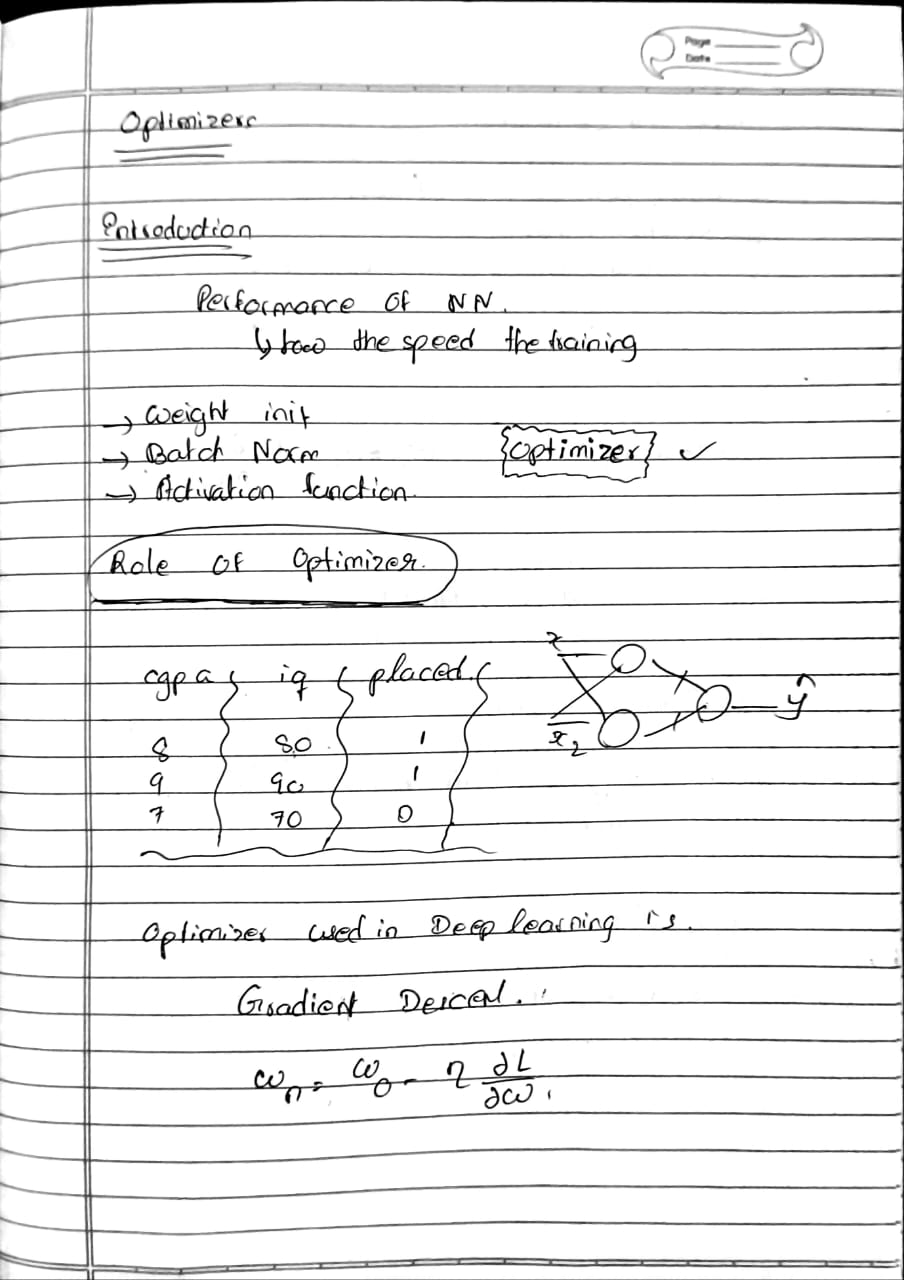 Page
Date
Optimizers
Introduction
Performance of NN.
↳ how the speed the training
→ Weight init
→ Batch Norm
{Optimizer} ✓
→ Activation function.
Role of Optimizer.
cgpa iq placed
8 80 1
9 90 1
7 70 0
x
x₂
ŷ
Optimizer used in Deep learning is.
Gradient Descent.
ωₙ = ω₀ - η ∂L/∂ω.